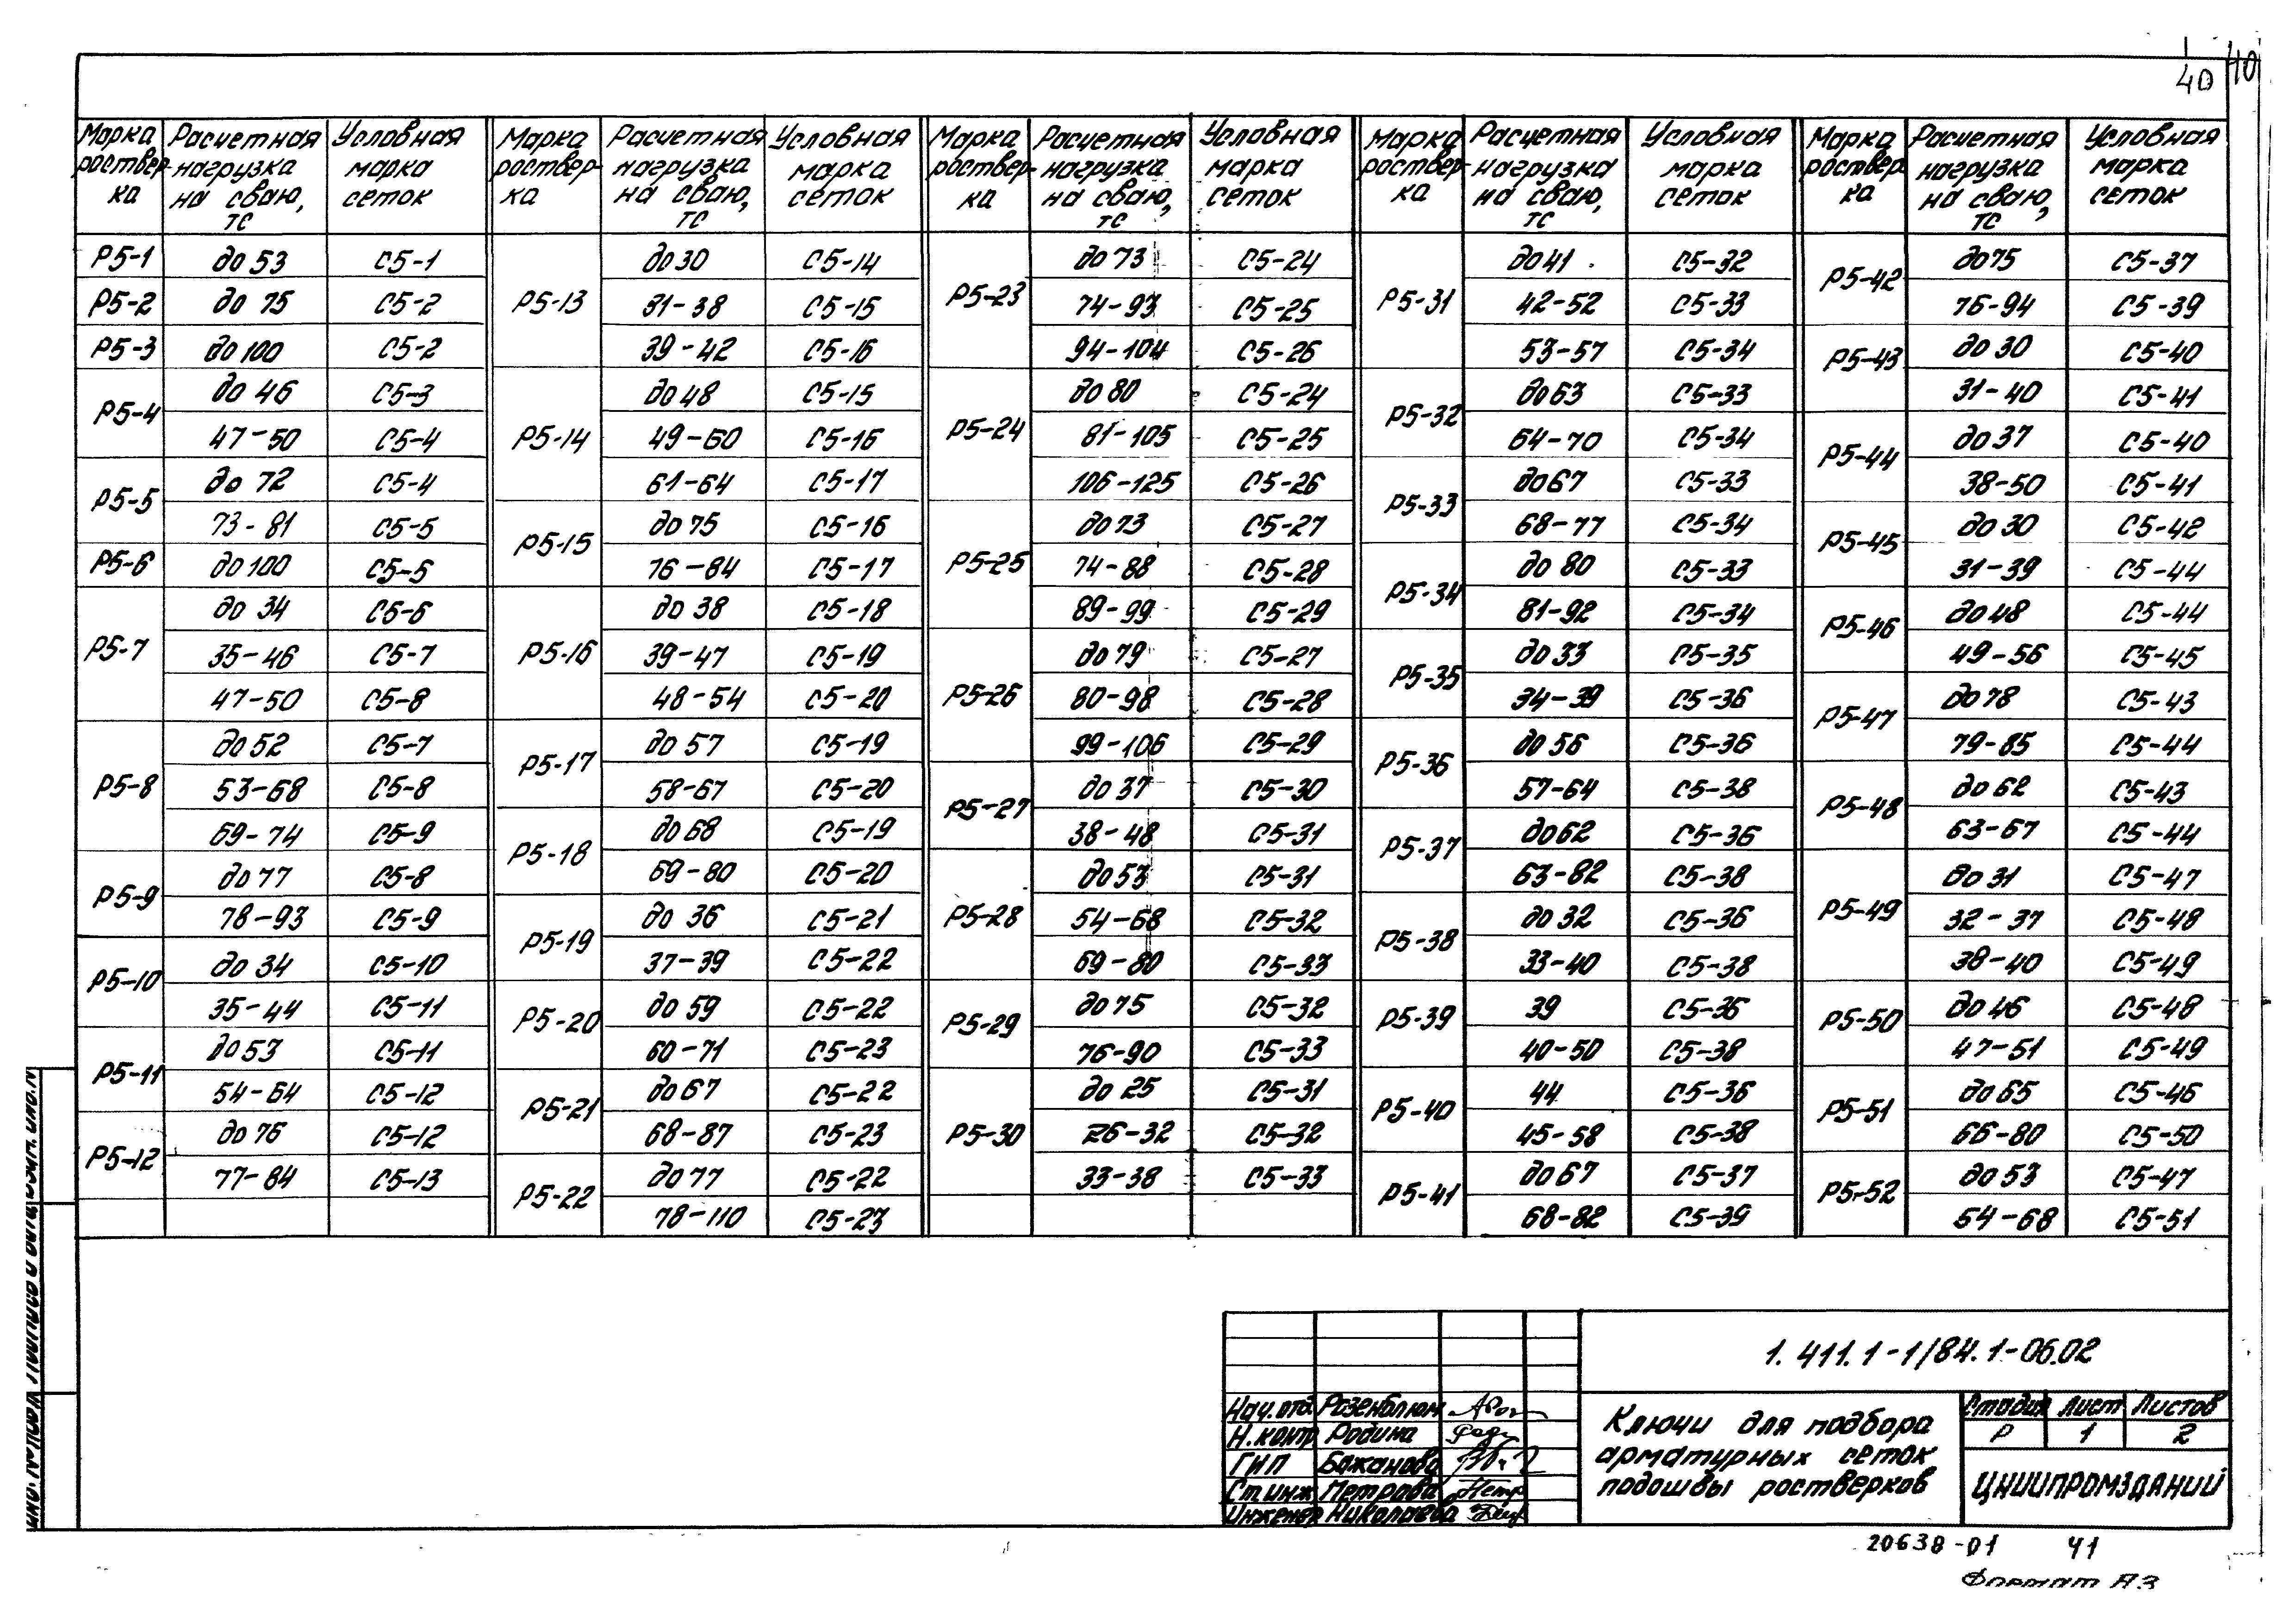 40 40
Марка ростверка | Расчетная нагрузка на сваю, тс | Условная марка сеток | Марка ростверка | Расчетная нагрузка на сваю, тс | Условная марка сеток | Марка ростверка | Расчетная нагрузка на сваю, тс | Условная марка сеток | Марка ростверка | Расчетная нагрузка на сваю, тс | Условная марка сеток | Марка ростверка | Расчетная нагрузка на сваю, тс | Условная марка сеток
Р5-1 до 53 С5-1
Р5-2 до 75 С5-2
Р5-3 до 100 С5-2
Р5-4 до 46 С5-3
47-50 С5-4
Р5-5 до 72 С5-4
73-81 С5-5
Р5-6 до 100 С5-5
Р5-7 до 34 С5-6
35-46 С5-7
47-50 С5-8
Р5-8 до 52 С5-7
53-68 С5-8
69-74 С5-9
Р5-9 до 77 С5-8
78-93 С5-9
Р5-10 до 34 С5-10
35-44 С5-11
Р5-11 до 53 С5-11
54-64 С5-12
Р5-12 до 76 С5-12
77-84 С5-13
Р5-13 до 30 С5-14
31-38 С5-15
39-42 С5-16
Р5-14 до 48 С5-15
49-60 С5-16
61-64 С5-17
Р5-15 до 75 С5-16
76-84 С5-17
Р5-16 до 38 С5-18
39-47 С5-19
48-54 С5-20
Р5-17 до 57 С5-19
58-67 С5-20
Р5-18 до 68 С5-19
69-80 С5-20
Р5-19 до 36 С5-21
37-39 С5-22
Р5-20 до 59 С5-22
60-71 С5-23
Р5-21 до 67 С5-22
68-87 С5-23
Р5-22 до 77 С5-22
78-110 С5-23
Р5-23 до 73 С5-24
74-93 С5-25
94-104 С5-26
Р5-24 до 80 С5-24
81-105 С5-25
106-125 С5-26
Р5-25 до 73 С5-27
74-88 С5-28
89-99 С5-29
Р5-26 до 79 С5-27
80-98 С5-28
99-106 С5-29
Р5-27 до 37 С5-30
38-48 С5-31
Р5-28 до 53 С5-31
54-68 С5-32
69-80 С5-33
Р5-29 до 75 С5-32
76-90 С5-33
Р5-30 до 25 С5-31
26-32 С5-32
33-38 С5-33
Р5-31 до 41 С5-32
42-52 С5-33
53-57 С5-34
Р5-32 до 63 С5-33
64-70 С5-34
Р5-33 до 67 С5-33
68-77 С5-34
Р5-34 до 80 С5-33
81-92 С5-34
Р5-35 до 33 С5-35
34-39 С5-36
Р5-36 до 56 С5-36
57-64 С5-38
Р5-37 до 62 С5-36
63-82 С5-38
Р5-38 до 32 С5-36
33-40 С5-38
Р5-39 39 С5-36
40-50 С5-38
Р5-40 44 С5-36
45-58 С5-38
Р5-41 до 67 С5-37
68-82 С5-39
Р5-42 до 75 С5-37
76-94 С5-39
Р5-43 до 30 С5-40
31-40 С5-41
Р5-44 до 37 С5-40
38-50 С5-41
Р5-45 до 30 С5-42
31-39 С5-44
Р5-46 до 48 С5-44
49-56 С5-45
Р5-47 до 78 С5-43
79-85 С5-44
Р5-48 до 62 С5-43
63-67 С5-44
Р5-49 до 31 С5-47
32-37 С5-48
38-40 С5-49
Р5-50 до 46 С5-48
47-51 С5-49
Р5-51 до 65 С5-46
66-80 С5-50
Р5-52 до 53 С5-47
54-68 С5-51
1.411.1-1/84.1-06.02
Нач.отд. Розенблюм
Н.контр Родина
ГИП Бажанова
Ст.инж Петрова
Инженер Николаева
Ключи для подбора
арматурных сеток
подошвы ростверков
Стадия Лист Листов
Р 1 2
ЦНИИПРОМЗДАНИЙ
20638-01 41
Формат А3